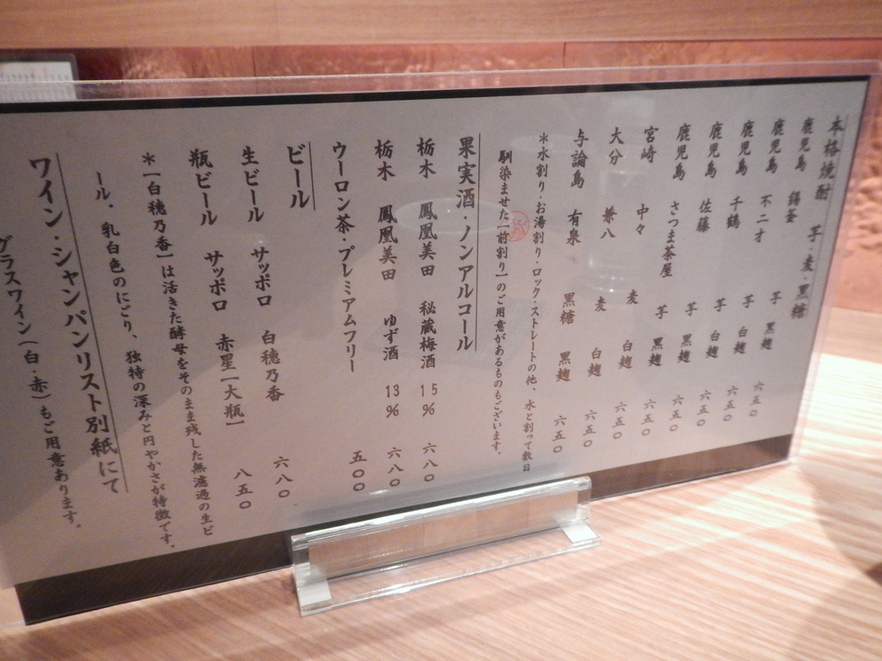 本格焼酎 芋・麦・黒糖
鹿児島 錫釜 芋 黒麹 六五〇
鹿児島 不二才 芋 白麹 六五〇
鹿児島 千鶴 芋 白麹 六五〇
鹿児島 佐藤 芋 黒麹 六五〇
鹿児島 さつま茶屋 芋 黒麹 六五〇
宮崎 中々 麦 白麹 六五〇
大分 兼八 麦 白麹 六五〇
与論島 有泉 黒糖 黒麹 六五〇
＊水割り・お湯割り・ロック・ストレートの他、水と割って数日
馴染ませた「前割り」のご用意があるものもございます。
果実酒・ノンアルコール
栃木 鳳凰美田 秘蔵梅酒 15% 六八〇
栃木 鳳凰美田 ゆず酒 13% 六八〇
ウーロン茶・プレミアムフリー 五〇〇
ビール
生ビール サッポロ 白穂乃香 六八〇
瓶ビール サッポロ 赤星「大瓶」 八五〇
＊「白穂乃香」は活きた酵母をそのまま残した無濾過の生ビ
ール。乳白色のにごり、独特の深みと円やかさが特徴です。
ワイン・シャンパンリスト別紙にて
グラスワイン（白・赤）もご用意あります。